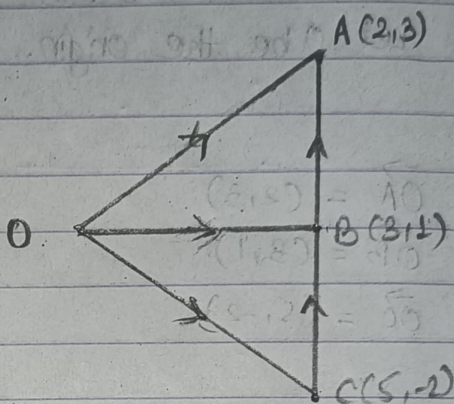 A (2,3)
O
B (3,1)
C(5,-2)